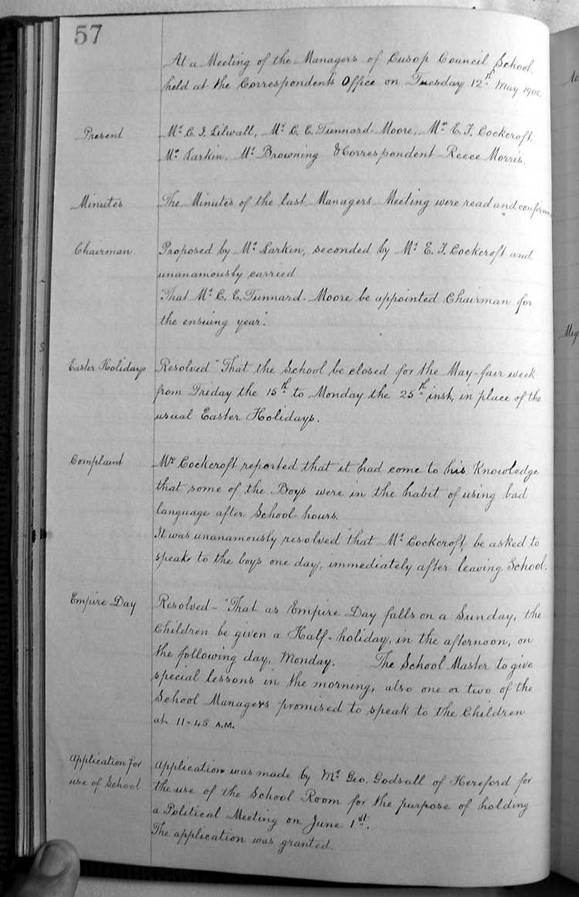 57
At a Meeting of the Managers of Cusop Council School,
held at the Correspondents Office on Tuesday 12th May
Present Mr C. I. Lilwall, Mr C. E. Tunnard-Moore, Mr E. F. Cockcroft,
Mr Larkin, Mr Browning & Correspondent Reece Morris.
Minutes The Minutes of the last Managers Meeting were read and
Chairman Proposed by Mr Larkin, seconded by Mr E. F. Cockcroft and
unanamously carried
That Mr C. E. Tunnard-Moore be appointed Chairman for
the ensuing year".
Easter Holidays Resolved "That the School be closed for the May-fair week
from Friday the 15th to Monday the 25th inst, in place of the
usual Easter Holidays.
Complaint Mr Cockcroft reported that it had come to his Knowledge
that some of the Boys were in the habit of using bad
language after School hours.
It was unanamously resolved that Mr Cockcroft, be asked to
speak to the boys one day, immediately after leaving School.
Empire Day Resolved - "That as Empire Day falls on a Sunday, the
Children be given a Half-holiday, in the afternoon, on
the following day, Monday. The School Master to give
special lessons in the morning, also one or two of the
School Managers promised to speak to the Children
at 11-45 A.M.
Application for Application was made by Mr Geo. Godsall of Hereford for
use of School the use of the School Room for the purpose of holding
a Political Meeting on June 1st.
The application was granted